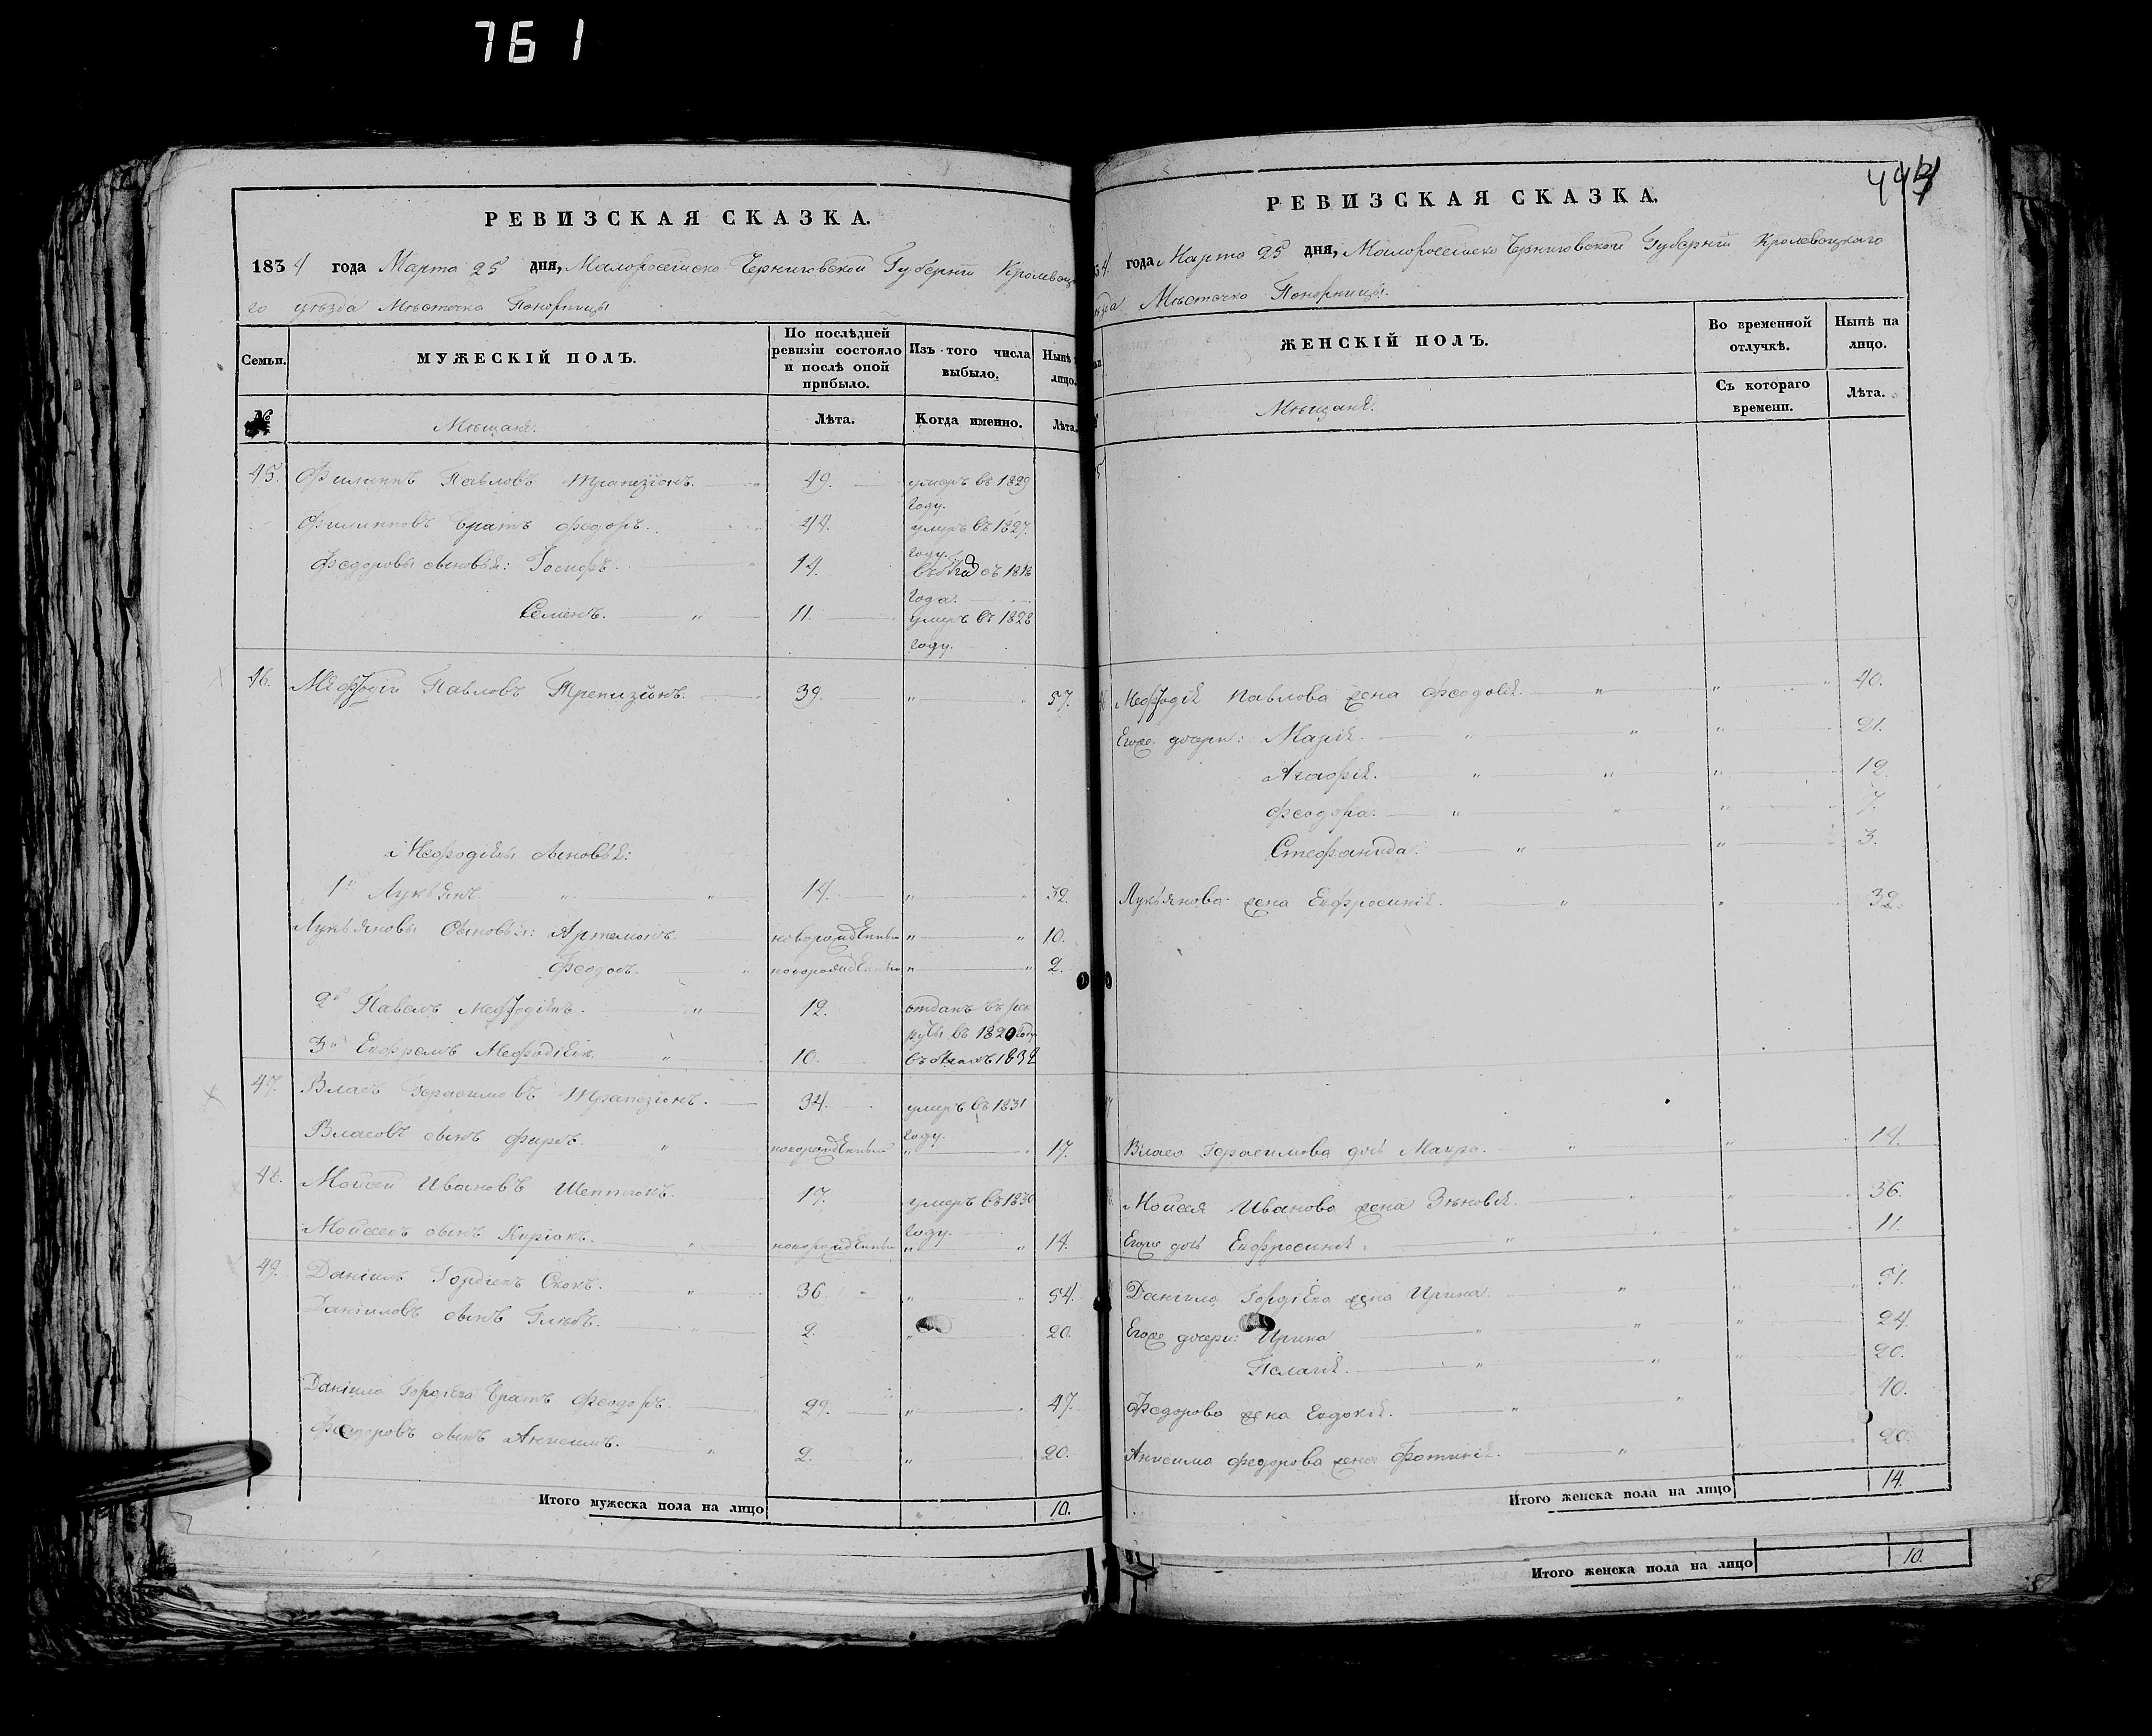 761
РЕВИЗСКАЯ СКАЗКА.
1834 года Марта 25 дня, Малороссійско Черниговской Губерніи Кролевец
го уезда Местечка Понорницы
Семьи. МУЖЕСКІЙ ПОЛЪ. По послѣдней ревизіи состояло и послѣ оной прибыло. Изъ того числа выбыло. Нынѣ лицо.
№ Мещане. Лѣта. Когда именно. Лѣта.
45. Филиппъ Павловъ 49. умеръ въ 1829 году.
Филипповъ братъ Федоръ. 44. умеръ въ 1827 году.
Федоровы сыновья: Іосифъ. 14. въ бегах съ 1818 года.
Семенъ. 11. умеръ въ 1828 году.
46. Мефодій Павловъ 39. " 57.
Мефодіевы сыновья:
1й Лукьянъ. " 14. " 32.
Лукьяновы сыновья: Артемонъ. новорожденный " " 10.
Феодосъ. новорожденный " " 2.
2й Павелъ Мефодіевъ. " 12. отданъ въ рек руты въ 1820 году
3й Ефремъ Мефодіевъ. " 10. 1832
47. Власъ Герасимовъ 34. умеръ въ 1831 году.
Власовъ сынъ Фирсъ. " новорожденный " 17.
48. Мойсей Ивановъ 17. умеръ въ 1830 году.
Мойсеевъ сынъ Киріакъ. новорожденный " " 14.
49. Даніилъ Гордіевъ Скокъ. " 36. " 54.
Даніиловъ сынъ Глебъ. " 2. " 20.
Даніила Гордіева братъ Феодоръ. 29. " 47.
Федоровъ сынъ Анисимъ. " 2. " 20.
Итого мужеска пола на лицо 10.
РЕВИЗСКАЯ СКАЗКА.
4 года Марта 25 дня, Малороссійско Черниговской Губерніи Кролевецкаго
Местечка Понорницы.
ЖЕНСКІЙ ПОЛЪ. Во временной отлучкѣ. Нынѣ на лицо.
Мещане. Съ котораго времени. Лѣта.
Мефодія Павлова жена Феодосія. " " 40.
Егоже дочери: Марія. " " " 21.
Агафія. " " " 12.
Феодора. " " " 7.
Стефанида. " " 3.
Лукьянова жена Ефросинія. " " 32.
Власа Герасимова дочь Мавра. " " 14.
Мойсея Иванова жена Зеновія. " " 36.
Егоже дочь Ефросинія. " " " 11.
Даніила Гордіева жена Ирина. " " 51.
Егоже дочери: Ирина " " " 24.
Пелагія. " " " 20.
Федорова жена Евдокія. " " 40.
Анисима Федорова жена Фотинія. " " 20.
Итого женска пола на лицо 14.
Итого женска пола на лицо 10.